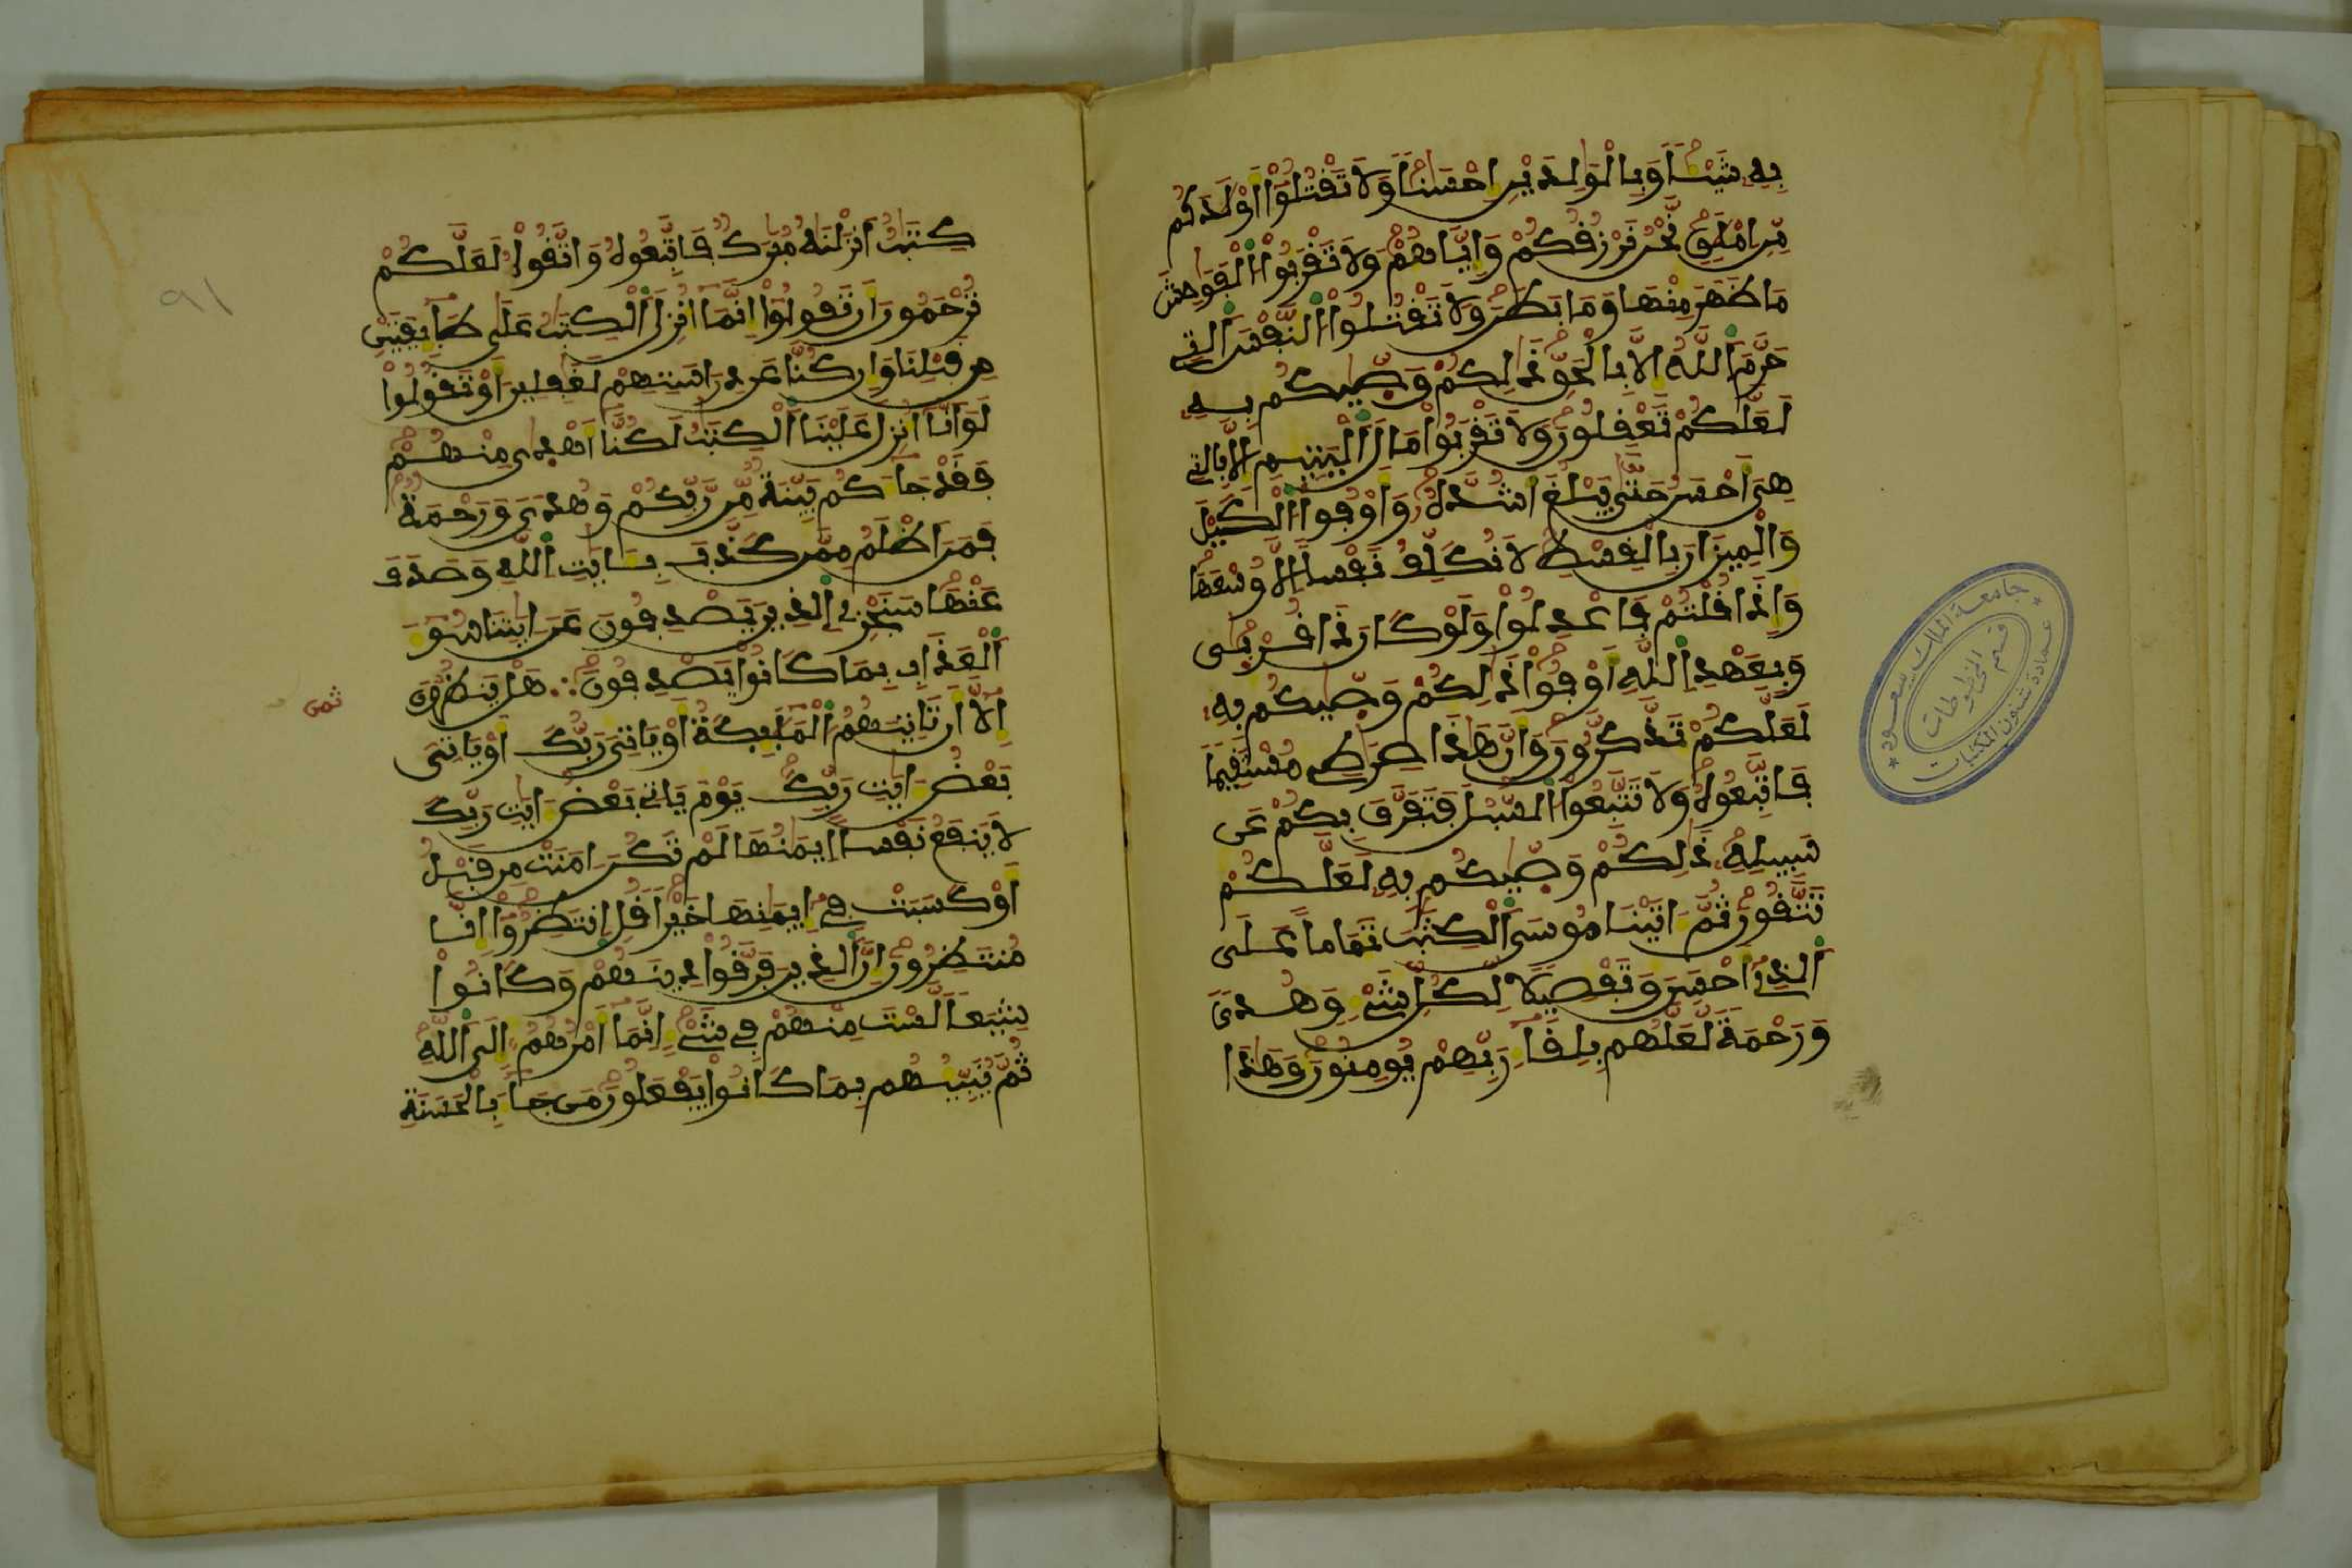 بِهِ شَيْـًٔا وَبِالْوَٰلِدَيْنِ إِحْسَٰنًا وَلَا تَقْتُلُوٓا۟ أَوْلَٰدَكُم
مِّنِ امْلَٰقٍ نَّحْنُ نَرْزُقُكُمْ وَإِيَّاهُمْ وَلَا تَقْرَبُوا۟ الْفَوَٰحِشَ
مَا ظَهَرَ مِنْهَا وَمَا بَطَنَ وَلَا تَقْتُلُوا۟ النَّفْسَ الَّتِے
حَرَّمَ اللَّهُ إِلَّا بِالْحَقِّ ذَٰلِكُمْ وَصَّيٰكُم بِهِ
لَعَلَّكُمْ تَعْقِلُونَ وَلَا تَقْرَبُوا۟ مَالَ الْيَتِيمِ إِلَّا بِالَّتِے
هِيَ أَحْسَنُ حَتَّىٰ يَبْلُغَ أَشُدَّهُۥ وَأَوْفُوا۟ الْكَيْلَ
وَالْمِيزَانَ بِالْقِسْطِ لَا نُكَلِّفُ نَفْسًا إِلَّا وُسْعَهَا
وَإِذَا قُلْتُمْ فَاعْدِلُوا۟ وَلَوْ كَانَ ذَا قُرْبَىٰ
وَبِعَهْدِ اللَّهِ أَوْفُوا۟ ذَٰلِكُمْ وَصَّيٰكُم بِهِ
لَعَلَّكُمْ تَذَّكَّرُونَ وَأَنَّ هَٰذَا صِرَٰطِے مُسْتَقِيمًا
فَاتَّبِعُوهُ وَلَا تَتَّبِعُوا۟ السُّبُلَ فَتَفَرَّقَ بِكُمْ عَن
سَبِيلِهِ ذَٰلِكُمْ وَصَّيٰكُم بِهِ لَعَلَّكُمْ
تَتَّقُونَ ثُمَّ ءَاتَيْنَا مُوسَى الْكِتَٰبَ تَمَامًا عَلَى
الَّذِے أَحْسَنَ وَتَفْصِيلًا لِّكُلِّ شَےْءٍ وَهُدًى
وَرَحْمَةً لَّعَلَّهُم بِلِقَآءِ رَبِّهِمْ يُومِنُونَ وَهَٰذَا
جامعة الملك سعود
قسم المخطوطات
عمادة شئون المكتبات
٩١
كِتَٰبٌ أَنزَلْنَٰهُ مُبَٰرَكٌ فَاتَّبِعُوهُ وَاتَّقُوا۟ لَعَلَّكُمْ
تُرْحَمُونَ أَن تَقُولُوٓا۟ إِنَّمَآ أُنزِلَ الْكِتَٰبُ عَلَىٰ طَآئِفَتَيْنِ
مِن قَبْلِنَا وَإِن كُنَّا عَن دِرَاسَتِهِمْ لَغَٰفِلِينَ أَوْ تَقُولُوا۟
لَوَ أَنَّآ أُنزِلَ عَلَيْنَا الْكِتَٰبُ لَكُنَّآ أَهْدَىٰ مِنْهُمْ
فَقَدْ جَآءَكُم بَيِّنَةٌ مِّن رَّبِّكُمْ وَهُدًى وَرَحْمَةٌ
فَمَنَ أَظْلَمُ مِمَّن كَذَّبَ بِـَٔايَٰتِ اللَّهِ وَصَدَفَ
عَنْهَا سَنَجْزِے الَّذِينَ يَصْدِفُونَ عَنَ ءَايَٰتِنَا سُوٓءَ
الْعَذَابِ بِمَا كَانُوا۟ يَصْدِفُونَ ∴ هَلْ يَنظُرُونَ
ثمن
إِلَّآ أَن تَاتِيَهُمُ الْمَلَٰٓئِكَةُ أَوْ يَاتِيَ رَبُّكَ أَوْ يَاتِيَ
بَعْضُ ءَايَٰتِ رَبِّكَ يَوْمَ يَاتِے بَعْضُ ءَايَٰتِ رَبِّكَ
لَا يَنفَعُ نَفْسًا إِيمَٰنُهَا لَمْ تَكُنَ ءَامَنَتْ مِن قَبْلُ
أَوْ كَسَبَتْ فِےٓ إِيمَٰنِهَا خَيْرًا قُلِ انتَظِرُوٓا۟ إِنَّا
مُنتَظِرُونَ إِنَّ الَّذِينَ فَرَّقُوا۟ دِينَهُمْ وَكَانُوا۟
شِيَعًا لَّسْتَ مِنْهُمْ فِے شَےْءٍ إِنَّمَآ أَمْرُهُمُۥٓ إِلَى اللَّهِ
ثُمَّ يُنَبِّئُهُم بِمَا كَانُوا۟ يَفْعَلُونَ مَن جَآءَ بِالْحَسَنَةِ